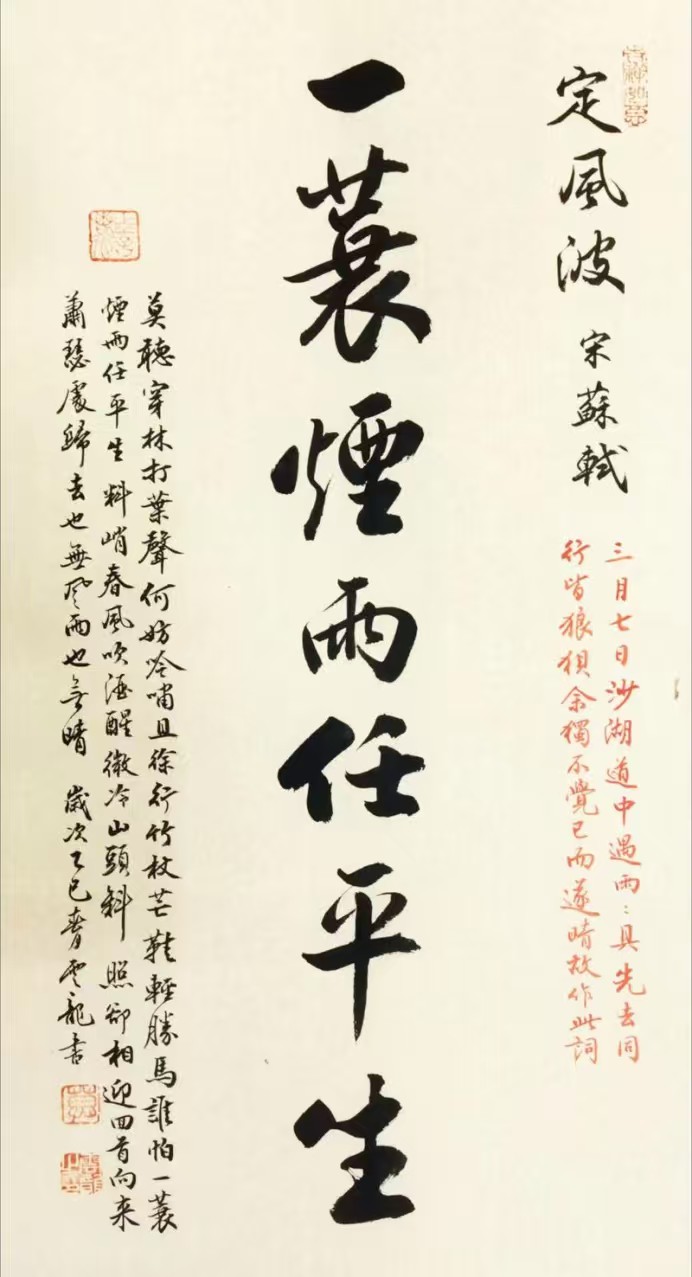 定風波 宋蘇軾
三月七日沙湖道中遇雨：具先去同
行皆狼狽余獨不覺已而遂晴故作此詞
一蓑煙雨任平生
莫聽穿林打葉聲何妨吟嘯且徐行竹杖芒鞋輕勝馬誰怕一蓑
煙雨任平生料峭春風吹酒醒微冷山頭斜照卻相迎回首向来
蕭瑟處歸去也無風雨也無晴 歲次乙巳春雲龍書